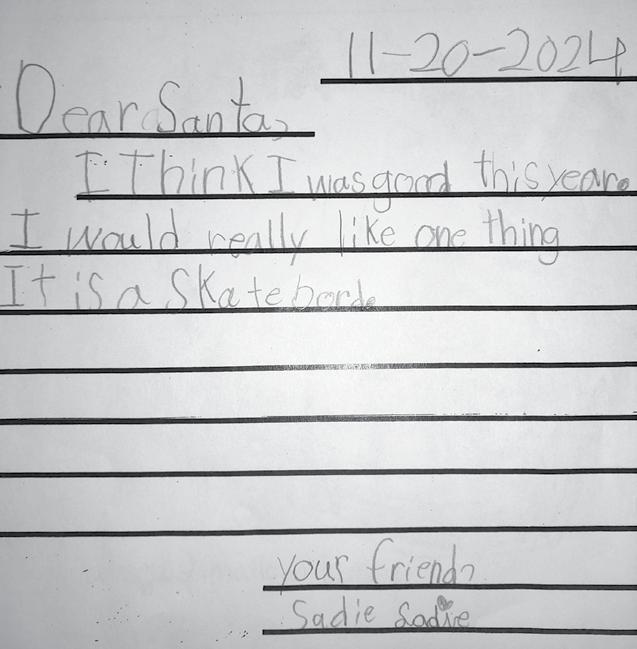 11-20-2024
Dear Santa,
I Think I was good this year.
I would really like one thing
It is a Skatebord.
your friend,
Sadie Sadie